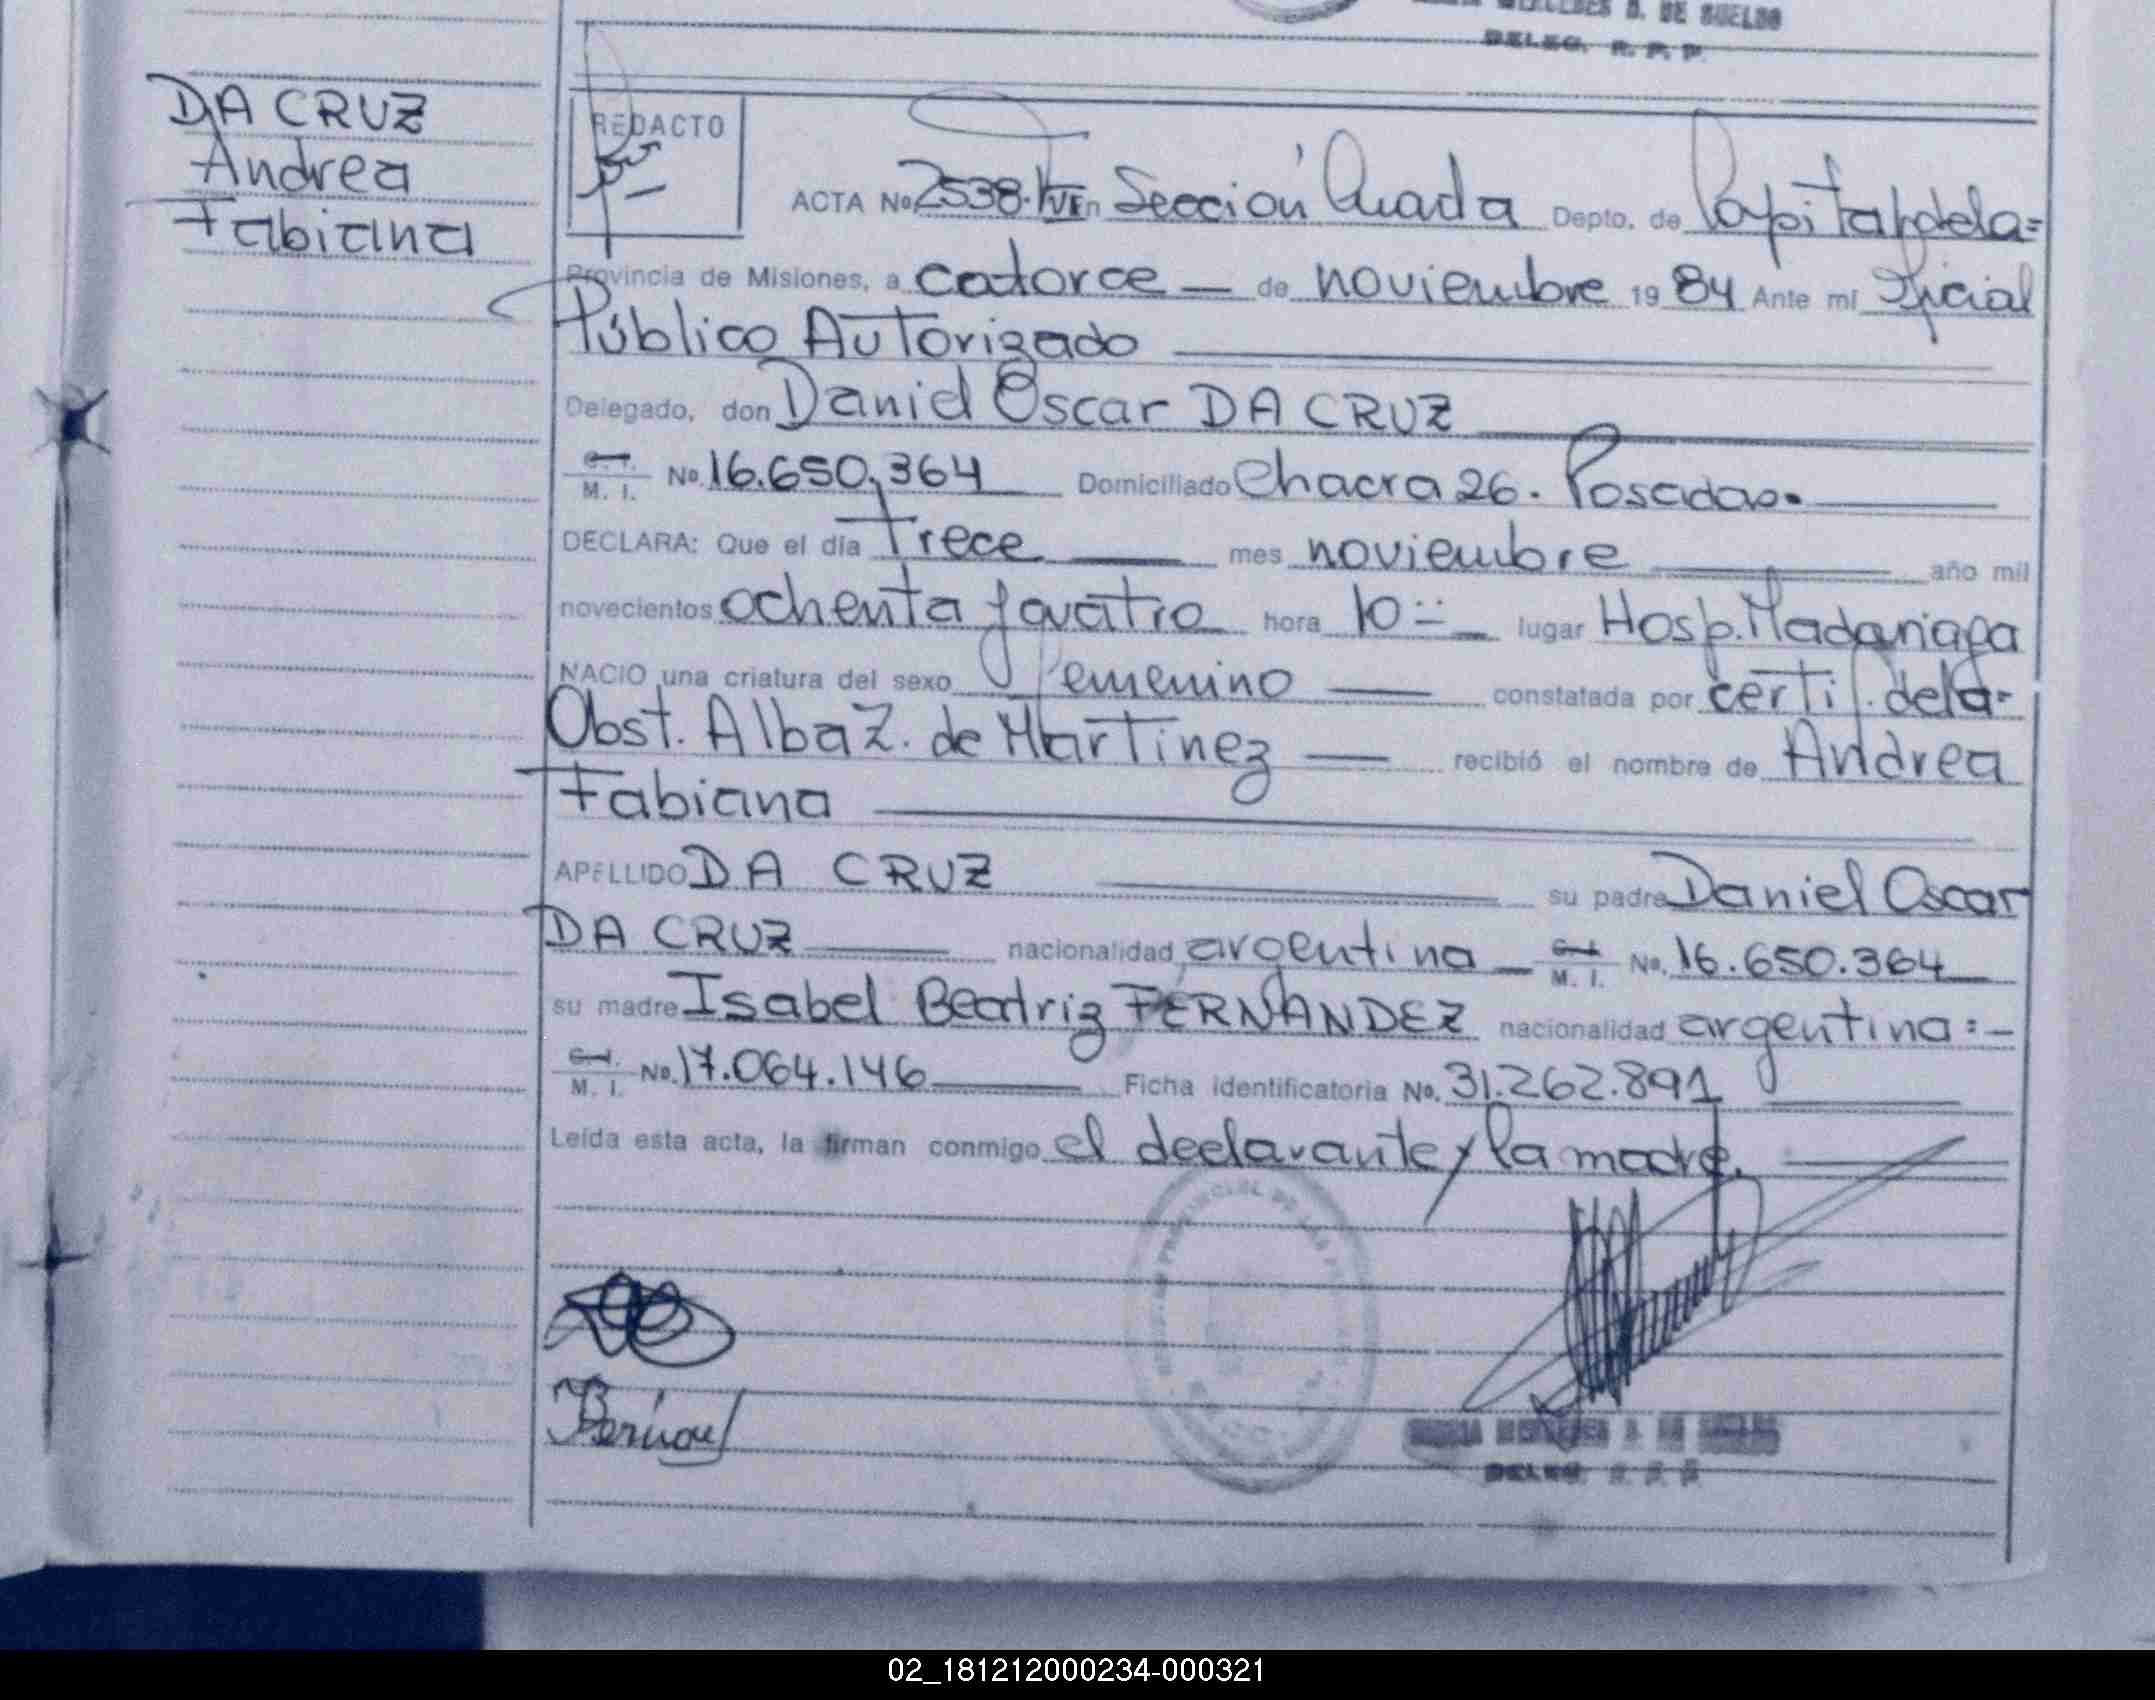 DELEG. R. P. P.
DA CRUZ
Andrea
Fabiana
REDACTO
ACTA No 2538. En Sección Cuada Depto. de Capital de la=
Provincia de Misiones, a catorce — de noviembre 19 84 Ante mi Oficial
Público Autorizado
Delegado, don Daniel Oscar DA CRUZ
C. I. M. I. No. 16.650.364 Domiciliado Chacra 26. Posadas.
DECLARA: Que el día Trece mes noviembre año mil
novecientos ochenta y cuatro hora 10 lugar Hosp. Madariaga
NACIO una criatura del sexo femenino constatada por certif. de la-
Obst. Alba Z. de Martínez recibió el nombre de Andrea
Fabiana
APELLIDO DA CRUZ su padre Daniel Oscar
DA CRUZ nacionalidad argentina C. I. M. I. No. 16.650.364
su madre Isabel Beatriz FERNANDEZ nacionalidad argentina:-
C. I. M. I. No. 17.064.146 Ficha identificatoria No. 31.262.891
Leída esta acta, la firman conmigo el declarante y la madre.
02_181212000234-000321